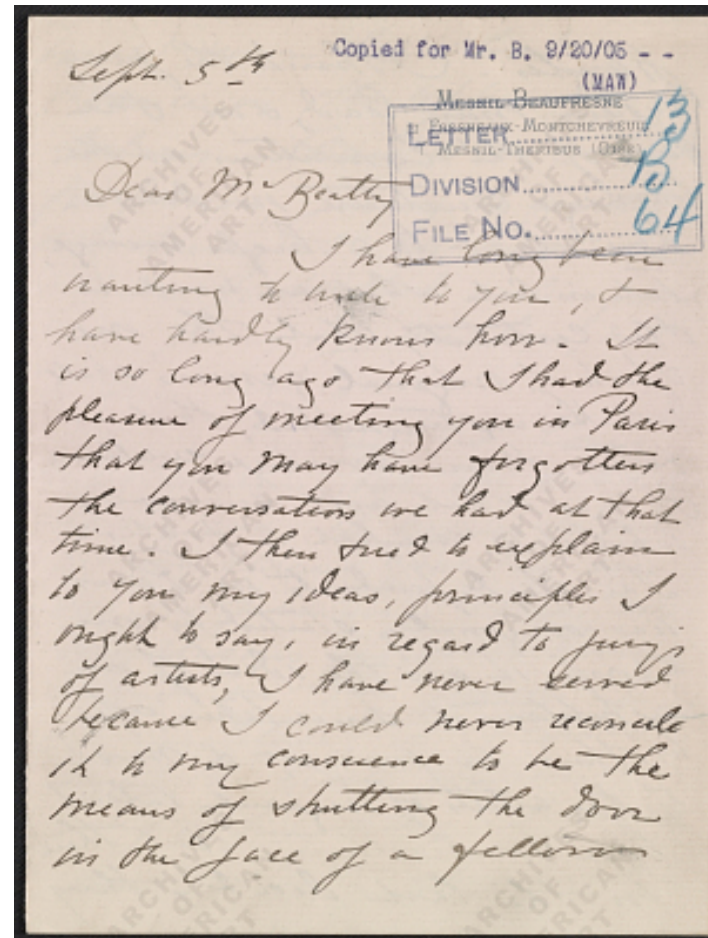 Sept. 5th
Copied for Mr. B. 9/20/05 - -
(MAW)
MESNIL-BEAUFRESNE
FRESNEAUX-MONTCHEVREUIL
MESNIL-THÉRIBUS (OISE)
LETTER 13
DIVISION B
FILE NO. 64
Dear Mr Beatty
I have long been
wanting to write to you, &
have hardly known how. It
is so long ago that I had the
pleasure of meeting you in Paris
that you may have forgotten
the conversation we had at that
time. I then tried to explain
to you my ideas, principles I
ought to say, in regard to jurys
of artists, I have never served
because I could never reconcile
it to my conscience to be the
means of shutting the door
in the face of a fellow
ARCHIVES
OF
AMERICAN
ART